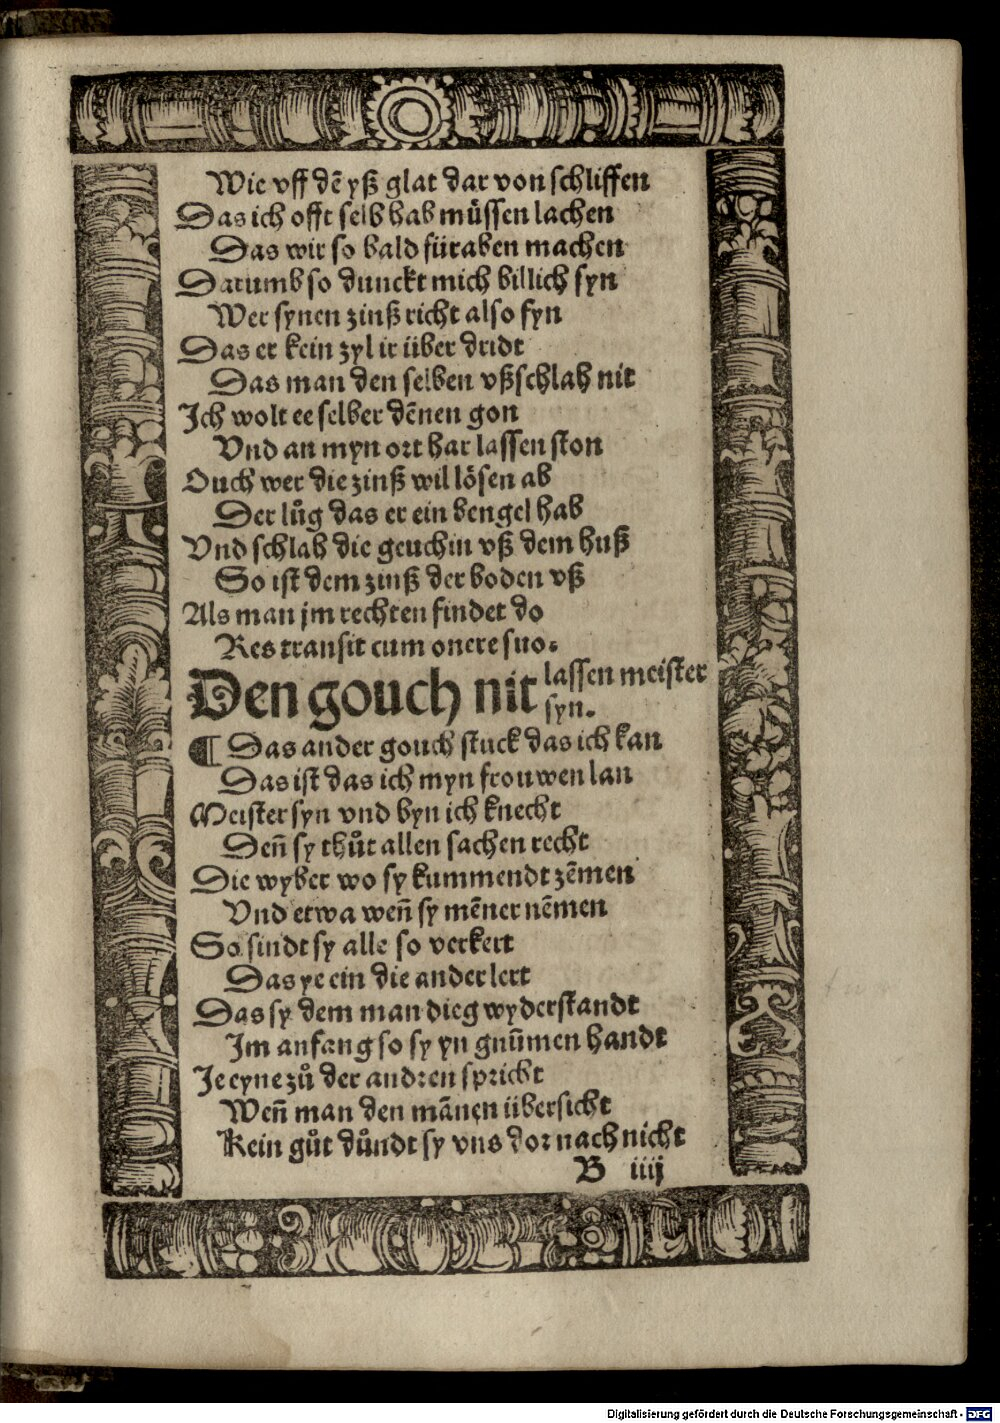 Wie vff dē yß glat dar von schliffen
Das ich offt selb hab müssen lachen
Das wir so bald füraben machen
Darumb so dunckt mich billich syn
Wer synen zinß richt also fyn
Das er kein zyl ir über dridt
Das man den selben vßschlah nit
Ich wolt ee selber dēnen gon
Vnd an myn ort har lassen ston
Ouch wer die zinß wil lösen ab
Der lůg das er ein bengel hab
Vnd schlah die geuchin vß dem huß
So ist dem zinß der boden vß
Als man jm rechten findet do
Res transit cum onere suo.
Den gouch nit lassen meister
syn.
¶ Das ander gouch stuck das ich kan
Das ist das ich myn frouwen lan
Meister syn vnd byn ich knecht
Deñ sy thůt allen sachen recht
Die wyber wo sy kummendt zēmen
Vnd etwa weñ sy mēner nēmen
So sindt sy alle so verkert
Das ye ein die ander lert
Das sy dem man dieg wyderstandt
Im anfang so sy yn gnūmen handt
Je eyne zů der andren spricht
Weñ man den mānen übersicht
Kein gůt důndt sy vns dor nach nicht
B iiij
Digitalisierung gefördert durch die Deutsche Forschungsgemeinschaft - DFG